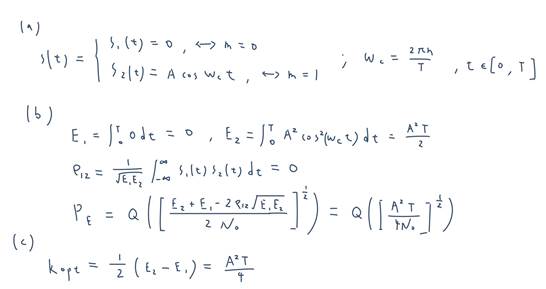 (a)
s(t) = { s₁(t) = 0 , ↔ m = 0
s₂(t) = A cos w_c t , ↔ m = 1 ; w_c = 2πn/T , t ∈ [0, T]
(b)
E₁ = ∫₀ᵀ 0 dt = 0 , E₂ = ∫₀ᵀ A² cos²(w_c t) dt = A²T/2
ρ₁₂ = 1/√(E₁E₂) ∫_{-∞}^{∞} s₁(t) s₂(t) dt = 0
P_E = Q([ (E₂ + E₁ - 2ρ₁₂√(E₁E₂)) / (2N₀) ]^{1/2}) = Q([ A²T / 4N₀ ]^{1/2})
(c)
k_opt = 1/2 (E₂ - E₁) = A²T/4